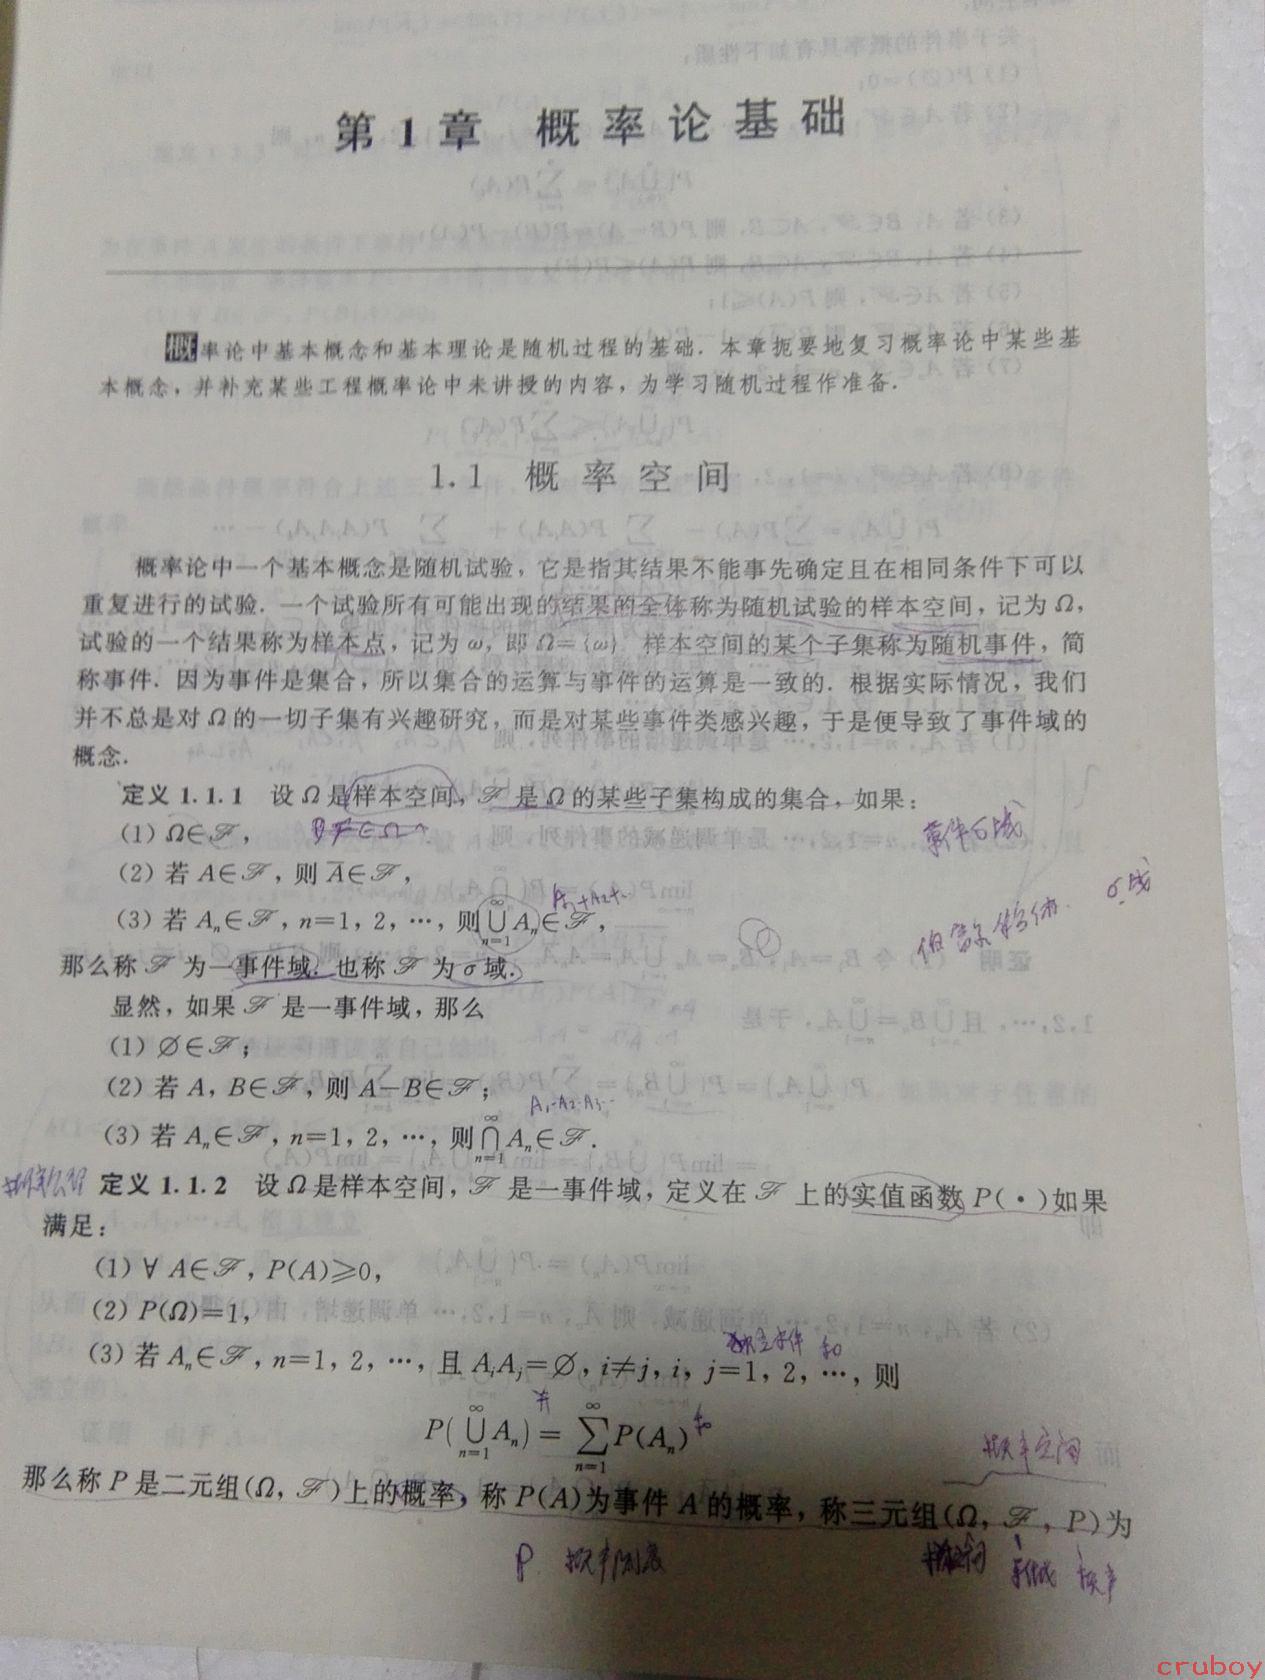 第1章 概率论基础
概率论中基本概念和基本理论是随机过程的基础. 本章扼要地复习概率论中某些基
本概念，并补充某些工程概率论中未讲授的内容，为学习随机过程作准备.
1.1 概率空间
概率论中一个基本概念是随机试验，它是指其结果不能事先确定且在相同条件下可以
重复进行的试验. 一个试验所有可能出现的结果的全体称为随机试验的样本空间，记为 Ω,
试验的一个结果称为样本点，记为 ω, 即 Ω={ω} 样本空间的某个子集称为随机事件，简
称事件. 因为事件是集合，所以集合的运算与事件的运算是一致的. 根据实际情况，我们
并不总是对 Ω 的一切子集有兴趣研究，而是对某些事件类感兴趣，于是便导致了事件域的
概念.
定义 1.1.1 设 Ω 是样本空间，ℱ 是 Ω 的某些子集构成的集合，如果：
(1) Ω∈ℱ,
(2) 若 A∈ℱ, 则 A̅∈ℱ,
A₁+A₂+…
(3) 若 Aₙ∈ℱ, n=1, 2, …, 则 ⋃_{n=1}^{∞} Aₙ∈ℱ,
σ域
那么称 ℱ 为一事件域. 也称 ℱ 为 σ 域.
显然，如果 ℱ 是一事件域，那么
(1) ∅∈ℱ;
(2) 若 A, B∈ℱ, 则 A−B∈ℱ;
A₁·A₂·A₃…
(3) 若 Aₙ∈ℱ, n=1, 2, …, 则 ⋂_{n=1}^{∞} Aₙ∈ℱ.
定义 1.1.2 设 Ω 是样本空间，ℱ 是一事件域，定义在 ℱ 上的实值函数 P(·) 如果
满足：
(1) ∀ A∈ℱ, P(A)≥0,
(2) P(Ω)=1,
(3) 若 Aₙ∈ℱ, n=1, 2, …, 且 AᵢAⱼ=∅, i≠j, i, j=1, 2, …, 则
P(⋃_{n=1}^{∞} Aₙ) = ∑_{n=1}^{∞} P(Aₙ)
概率空间
那么称 P 是二元组(Ω, ℱ)上的概率，称 P(A)为事件 A 的概率，称三元组(Ω, ℱ, P)为
P 概率测度
概率
cruboy